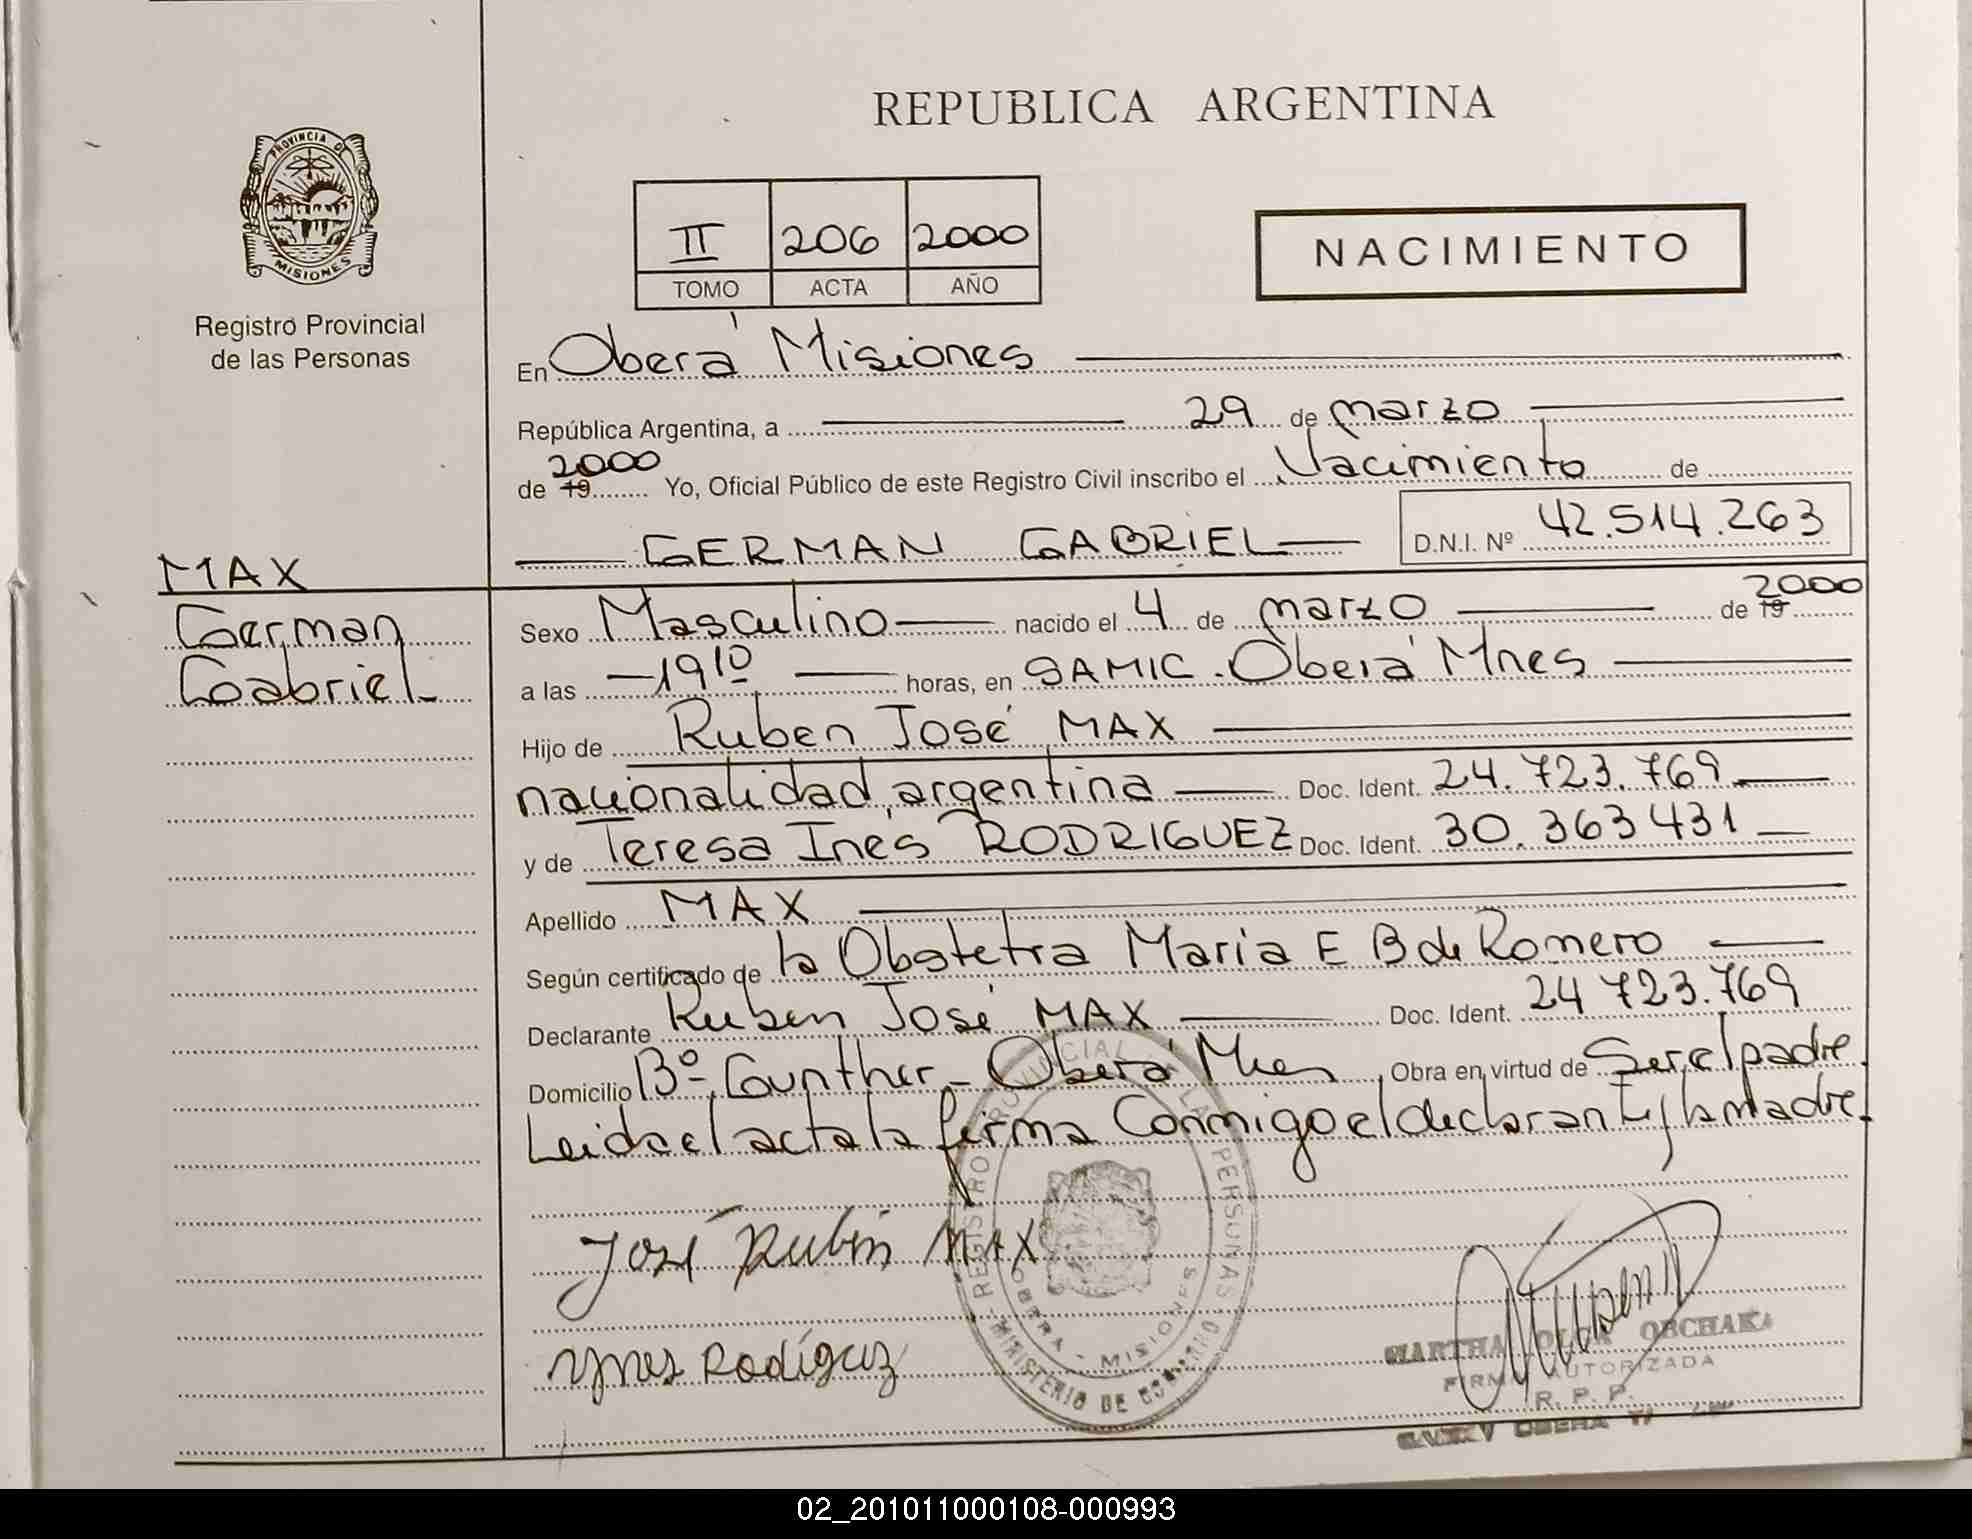 REPUBLICA ARGENTINA
PROVINCIA DE
MISIONES
Registro Provincial
de las Personas
II 206 2000
TOMO ACTA AÑO
NACIMIENTO
En Oberá Misiones
República Argentina, a 29 de marzo
2000
de 19 Yo, Oficial Público de este Registro Civil inscribo el Nacimiento de
GERMAN GABRIEL D.N.I. Nº 42.514.263
MAX
German
Gabriel
2000
Sexo Masculino nacido el 4 de marzo de 19
a las 19 10 horas, en SAMIC. Oberá Mnes
Hijo de Ruben José MAX
nacionalidad argentina Doc. Ident. 24.723.769
y de Teresa Ines RODRIGUEZ Doc. Ident. 30.363431
Apellido MAX
Según certificado de la Obstetra Maria E B de Romero
Declarante Ruben José MAX Doc. Ident. 24 723.769
Domicilio Bº Gunther - Oberá Mnes Obra en virtud de Ser el padre.
Leida el acta la firma Conmigo el declarante y la madre.
José Rubén MAX
Ynes Rodíguez
REGISTRO PROVINCIAL DE LAS PERSONAS
OBERA - MISIONES
MINISTERIO DE GOBIERNO
MARTHA OLGA OBCHAKA
FIRMA AUTORIZADA
R. P. P.
OBERA
02_201011000108-000993